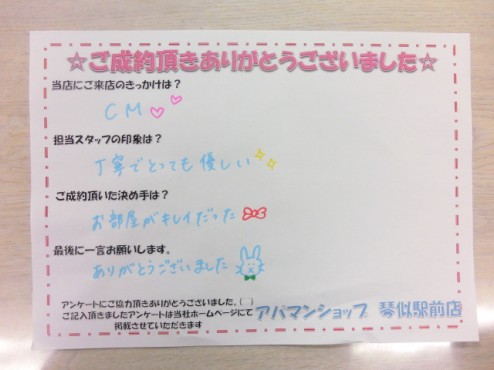 ☆ご成約頂きありがとうございました☆
当店にご来店のきっかけは？
CM
担当スタッフの印象は？
丁寧でとっても優しい
ご成約頂いた決め手は？
お部屋がキレイだった
最後に一言お願いします。
ありがとうございました
アンケートにご協力頂きありがとうございました。
ご記入頂きましたアンケートは当社ホームページにて
掲載させていただきます
アパマンショップ 琴似駅前店